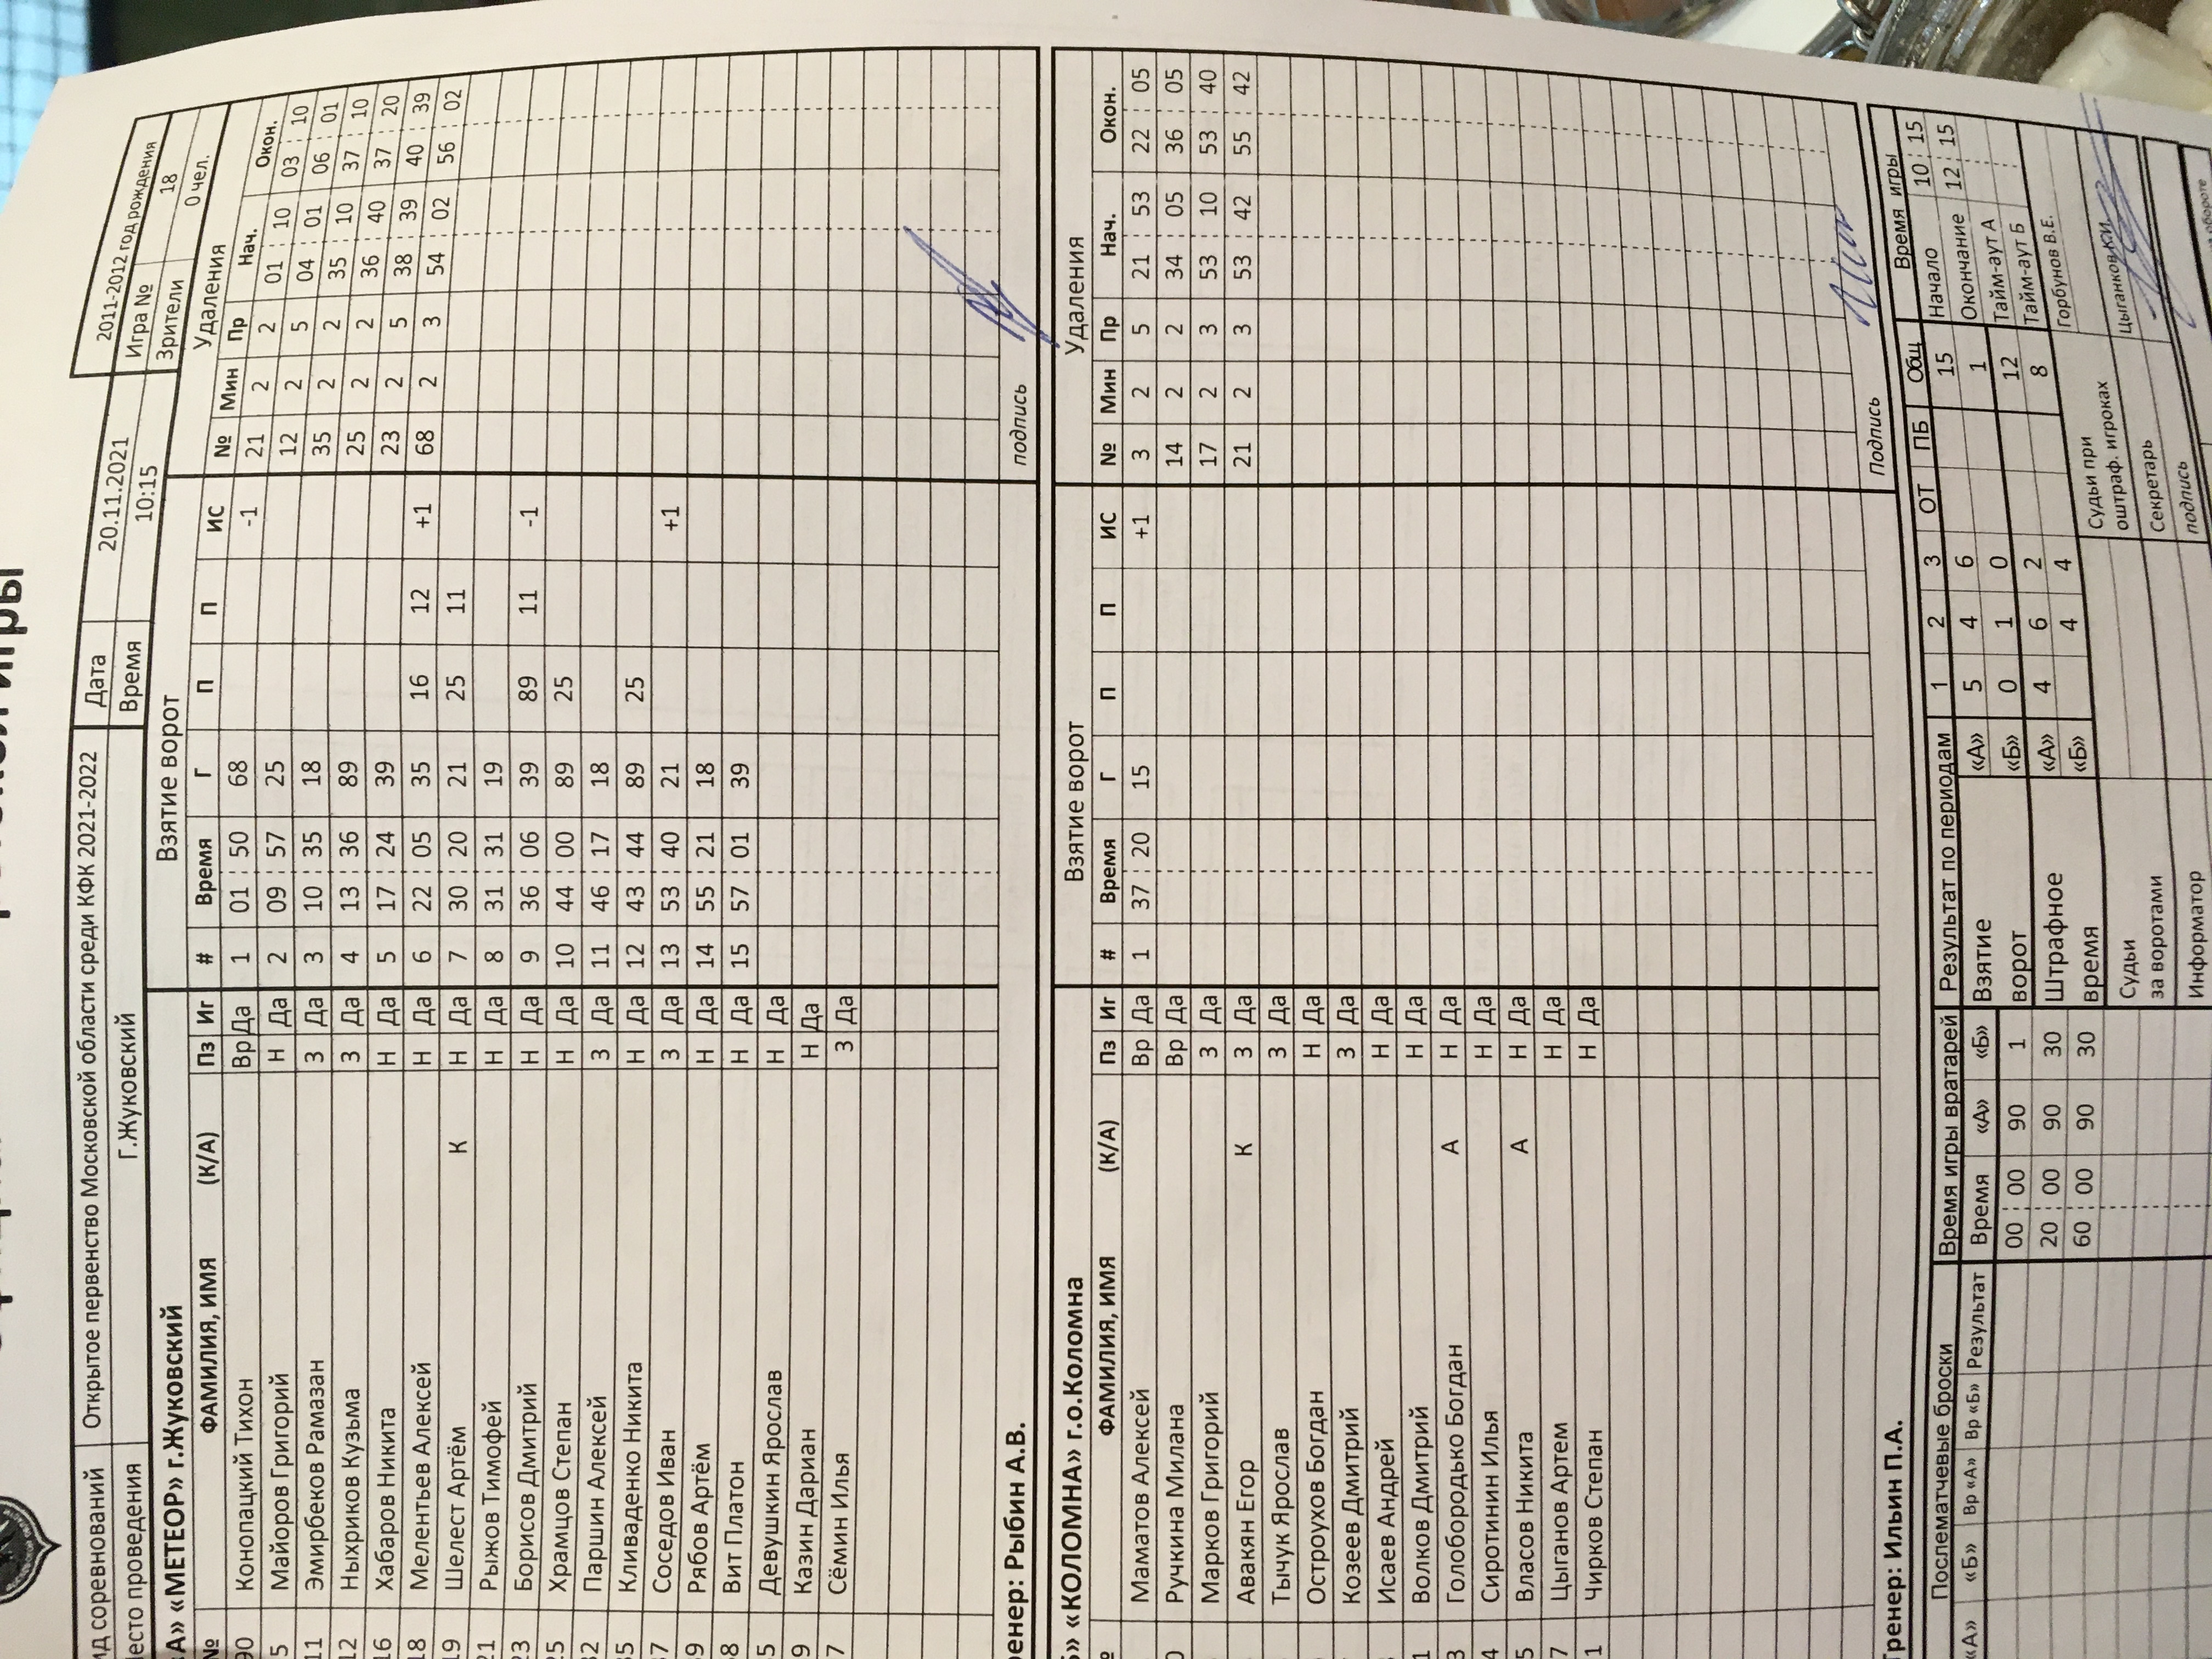 Вид соревнований Открытое первенство Московской области среди КФК 2021-2022 Дата 20.11.2021 2011-2012 год рождения
Место проведения Г.Жуковский Время 10:15 Игра № 18
Зрители 0 чел.
«А» «МЕТЕОР» г.Жуковский Взятие ворот Удаления
№ ФАМИЛИЯ, ИМЯ (К/А) Пз Иг # Время Г П П ИС № Мин Пр Нач. Окон.
90 Конопацкий Тихон Вр Да 1 01 : 50 68 -1 21 2 2 01 : 10 03 : 10
5 Майоров Григорий Н Да 2 09 : 57 25 12 2 5 04 : 01 06 : 01
11 Эмирбеков Рамазан З Да 3 10 : 35 18 35 2 2 35 : 10 37 : 10
12 Ныхриков Кузьма З Да 4 13 : 36 89 25 2 2 36 : 40 37 : 20
16 Хабаров Никита Н Да 5 17 : 24 39 23 2 5 38 : 39 40 : 39
18 Мелентьев Алексей Н Да 6 22 : 05 35 16 12 +1 68 2 3 54 : 02 56 : 02
19 Шелест Артём К Н Да 7 30 : 20 21 25 11
21 Рыжов Тимофей Н Да 8 31 : 31 19
23 Борисов Дмитрий Н Да 9 36 : 06 39 89 11 -1
25 Храмцов Степан Н Да 10 44 : 00 89 25
32 Паршин Алексей З Да 11 46 : 17 18
35 Кливаденко Никита Н Да 12 43 : 44 89 25
7 Соседов Иван З Да 13 53 : 40 21 +1
9 Рябов Артём Н Да 14 55 : 21 18
8 Вит Платон Н Да 15 57 : 01 39
5 Девушкин Ярослав Н Да
9 Казин Дариан Н Да
7 Сёмин Илья З Да
Тренер: Рыбин А.В. подпись
«Б» «КОЛОМНА» г.о.Коломна Взятие ворот Удаления
№ ФАМИЛИЯ, ИМЯ (К/А) Пз Иг # Время Г П П ИС № Мин Пр Нач. Окон.
Маматов Алексей Вр Да 1 37 : 20 15 +1 3 2 5 21 : 53 22 : 05
0 Ручкина Милана Вр Да 14 2 2 34 : 05 36 : 05
Марков Григорий З Да 17 2 3 53 : 10 53 : 40
Авакян Егор К З Да 21 2 3 53 : 42 55 : 42
Тычук Ярослав З Да
Остроухов Богдан Н Да
Козеев Дмитрий З Да
Исаев Андрей Н Да
1 Волков Дмитрий Н Да
3 Голобородько Богдан А Н Да
4 Сиротинин Илья Н Да
5 Власов Никита А Н Да
7 Цыганов Артем Н Да
1 Чирков Степан Н Да
Тренер: Ильин П.А. Подпись
Послематчевые броски Время игры вратарей Результат по периодам 1 2 3 ОТ ПБ Общ Время игры
«А» «Б» Вр «А» Вр «Б» Результат Время «А» «Б» Взятие ворот «А» 5 4 6 15 Начало 10 : 15
00 : 00 90 1 «Б» 0 1 0 1 Окончание 12 : 15
20 : 00 90 30 Штрафное время «А» 4 6 2 12 Тайм-аут А
60 : 00 90 30 «Б» 4 4 8 Тайм-аут Б
Судьи за воротами Судьи при оштраф. игроках Горбунов В.Е.
Информатор Секретарь
подпись